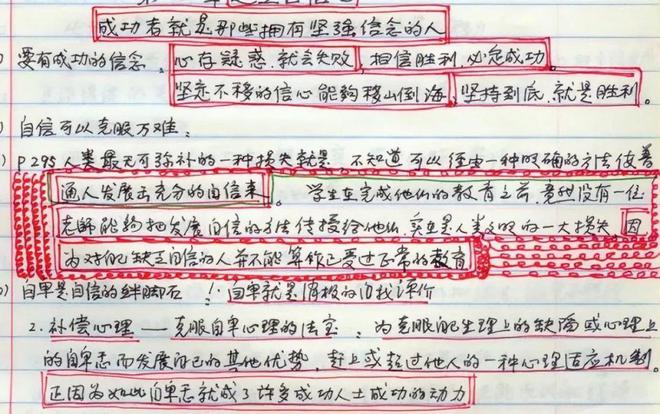 成功者就是那些拥有坚强信念的人
要有成功的信念、心存疑惑,就会失败,相信胜利,必定成功。
坚定不移的信心能夠移山倒海,坚持到底,就是胜利。
自信可以克服万难:
P295 人类最无可弥补的一种损失就是,不知道可以经由一种明确的方法使普
通人发展出充分的自信来。学生在完成他们的教育之前,竟然没有一位
老師能夠把发展自信的方法传授给他们,实在是人类文明的一大损失,因
为对自己缺乏自信的人并不能算作已受过正常的教育
自卑是自信的绊脚石:1. 自卑就是消极的自我评价
2. 补偿心理——克服自卑心理的法宝:为克服自己生理上的缺陷或心理上
的自卑志而发展自己的其他优势,赶上或超过他人的一种心理适应机制。
正因为如此自卑志就成了许多成功人士成功的动力